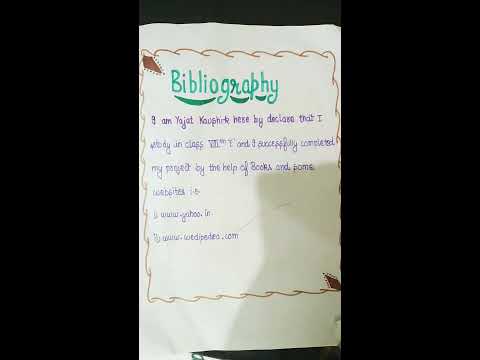 Bibliography
I am Yajat Kaushik here by declare that I
study in class VIIth 'E' and I successfully completed
my project by the help of Books and some
websites i.e.
i) www.yahoo.in
ii) www.wedipedea.com